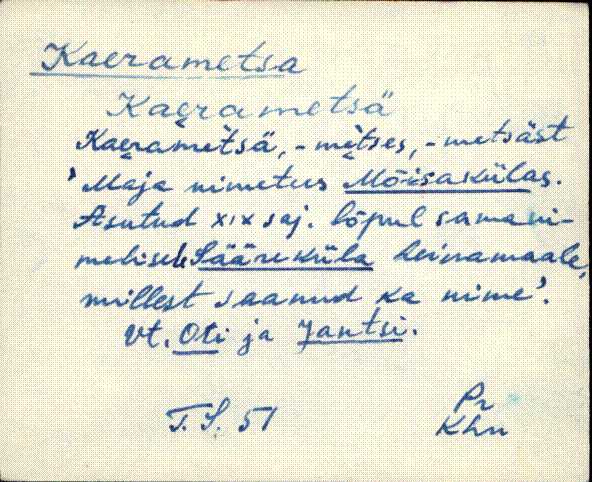 Kaerametsa
Kaerametsä
Kaerametsä, -metses, -metsäst
'Maja nimetus Mõisakülas.
Asutud XIX saj. lõpul samani-
melisele Sääreküla heinamaale,
millest saanud ka nime'.
Vt. Oti ja Jantsi.
T.S. 51
Pr
Khn